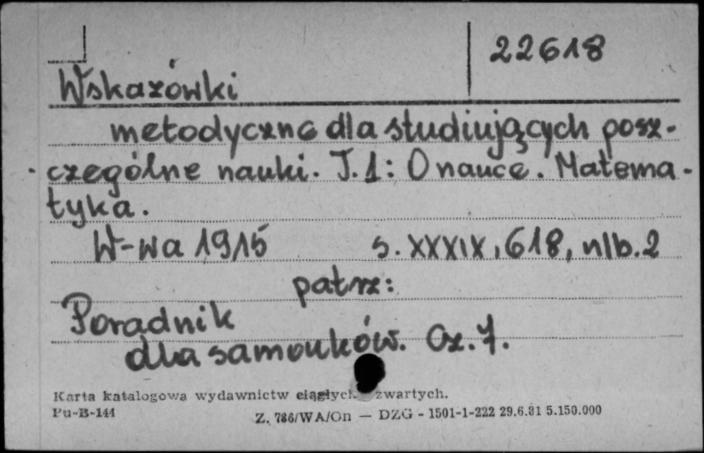 22618
Wskazówki
metodyczne dla studiujących posz-
czególne nauki. T.1: O nauce. Matema-
tyka.
W-wa 1915 s. XXXIX, 618, nlb. 2
patrz:
Poradnik
dla samouków. Cz. 7.
Karta katalogowa wydawnictw ciągłych zwartych.
Pu-B-144
Z. 786/WA/On — DZG - 1501-1-222 29.6.81 5.150.000